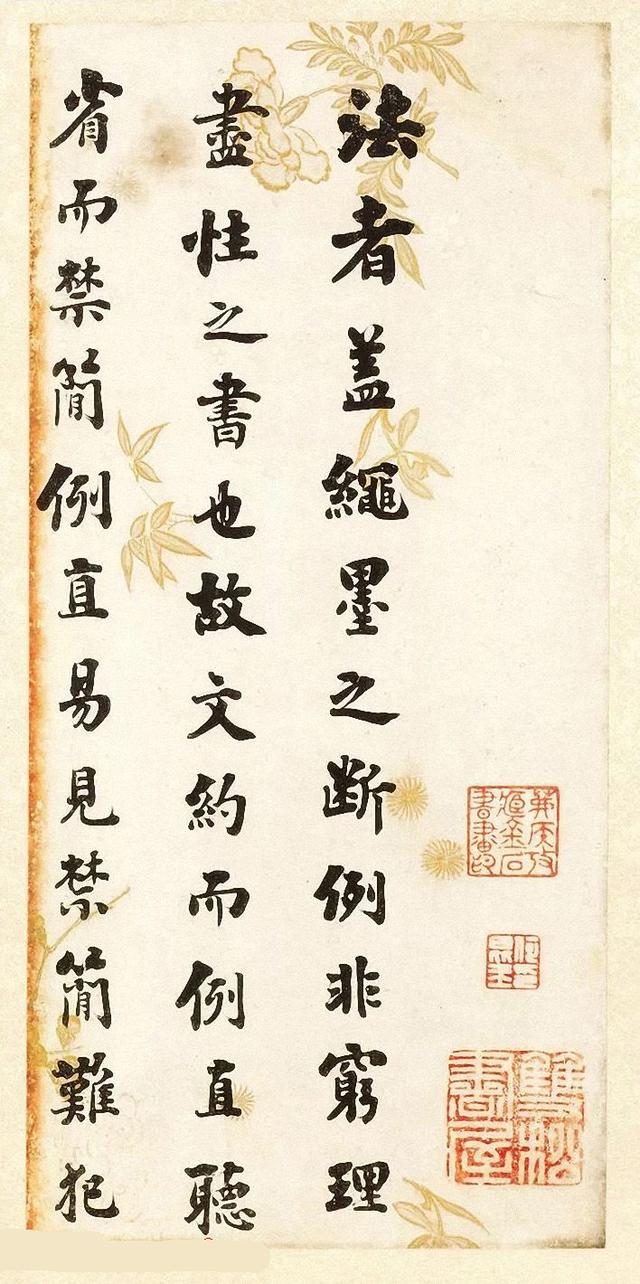 法者盖繩墨之断例非窮理
盡性之書也故文約而例直聽
省而禁簡例直易見禁簡難犯
雙松書屋